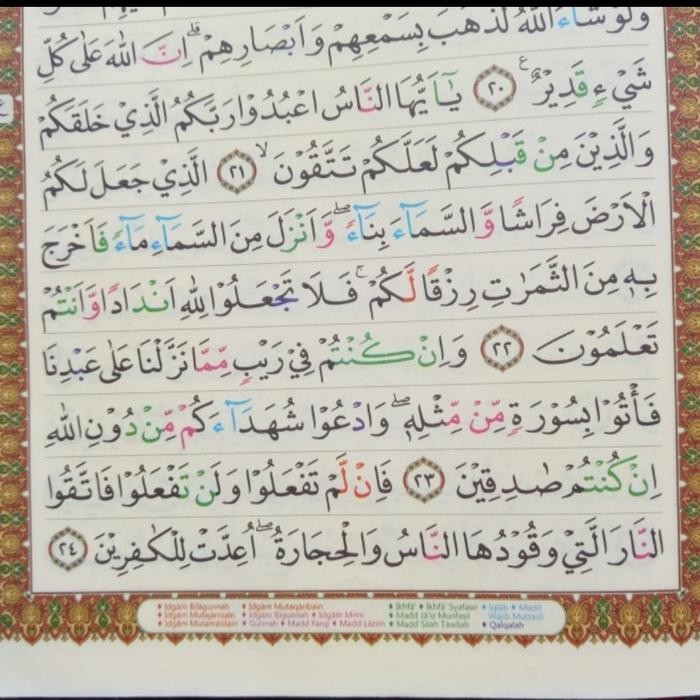 وَلَوْ شَاۤءَ اللّٰهُ لَذَهَبَ بِسَمْعِهِمْ وَاَبْصَارِهِمْ ۗ اِنَّ اللّٰهَ عَلٰى كُلِّ
شَيْءٍ قَدِيْرٌ ࣖ ٢٠ يٰٓاَيُّهَا النَّاسُ اعْبُدُوْا رَبَّكُمُ الَّذِيْ خَلَقَكُمْ
وَالَّذِيْنَ مِنْ قَبْلِكُمْ لَعَلَّكُمْ تَتَّقُوْنَ ۙ ٢١ الَّذِيْ جَعَلَ لَكُمُ
الْاَرْضَ فِرَاشًا وَّالسَّمَاۤءَ بِنَاۤءً ۖ وَّاَنْزَلَ مِنَ السَّمَاۤءِ مَاۤءً فَاَخْرَجَ
بِهٖ مِنَ الثَّمَرٰتِ رِزْقًا لَّكُمْ ۚ فَلَا تَجْعَلُوْا لِلّٰهِ اَنْدَادًا وَّاَنْتُمْ
تَعْلَمُوْنَ ٢٢ وَاِنْ كُنْتُمْ فِيْ رَيْبٍ مِّمَّا نَزَّلْنَا عَلٰى عَبْدِنَا
فَأْتُوْا بِسُوْرَةٍ مِّنْ مِّثْلِهٖ ۖ وَادْعُوْا شُهَدَاۤءَكُمْ مِّنْ دُوْنِ اللّٰهِ
اِنْ كُنْتُمْ صٰدِقِيْنَ ٢٣ فَاِنْ لَّمْ تَفْعَلُوْا وَلَنْ تَفْعَلُوْا فَاتَّقُوا
النَّارَ الَّتِيْ وَقُوْدُهَا النَّاسُ وَالْحِجَارَةُ ۖ اُعِدَّتْ لِلْكٰفِرِيْنَ ٢٤
♦ Idgām Bilāgunnah ♦ Idgām Mutaqāribain ♦ Ikhfā' ♦ Ikhfā' Syafawi ♦ Iqlab ♦ Madd
♦ Idgām Mutajānisain ♦ Idgām Bigunnah ♦ Idgām Mimi ♦ Madd Jā'iz Munfaṣil Wajib Muttasil
♦ Idgām Mutamāṡilain ♦ Gunnah ♦ Madd Farqi ♦ Madd Lāzim ♦ Madd Ṣilah Ṭawīlah ♦ Qalqalah